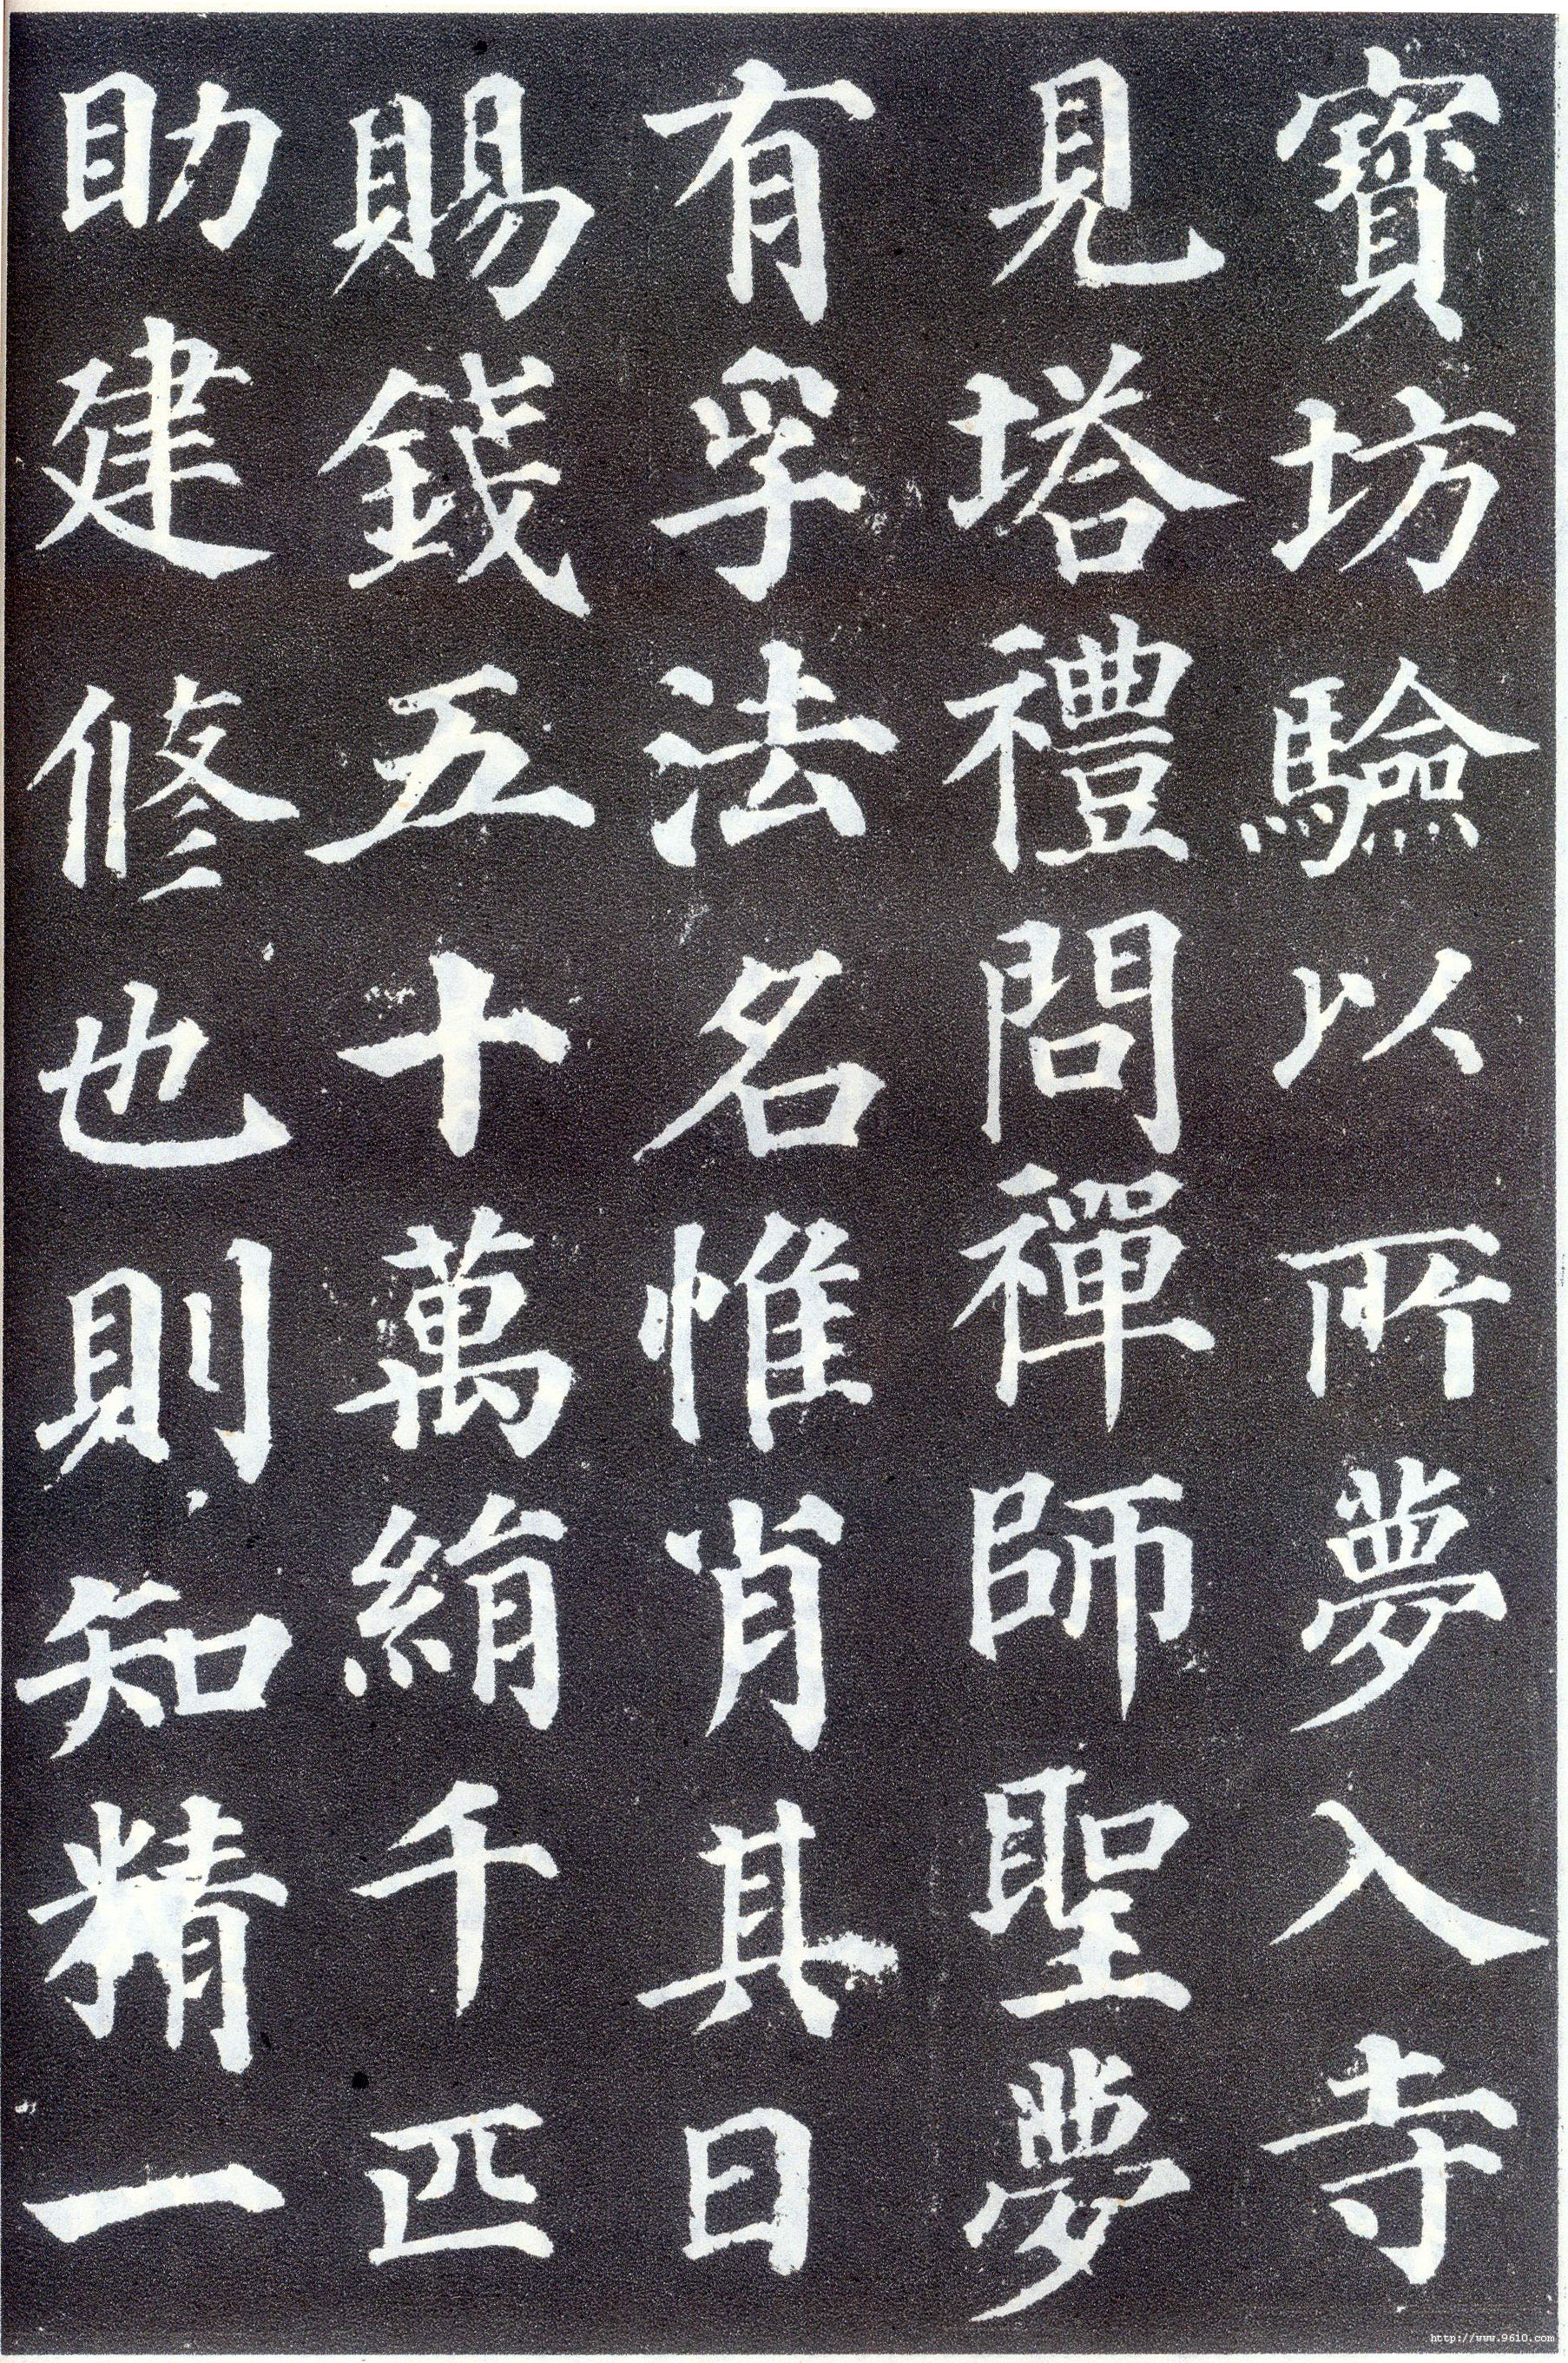 寶坊驗以所夢入寺
見塔禮問禪師聖夢
有孚法名惟肖其日
賜錢五十萬絹千匹
助建修也則知精一
http://www.9610.com